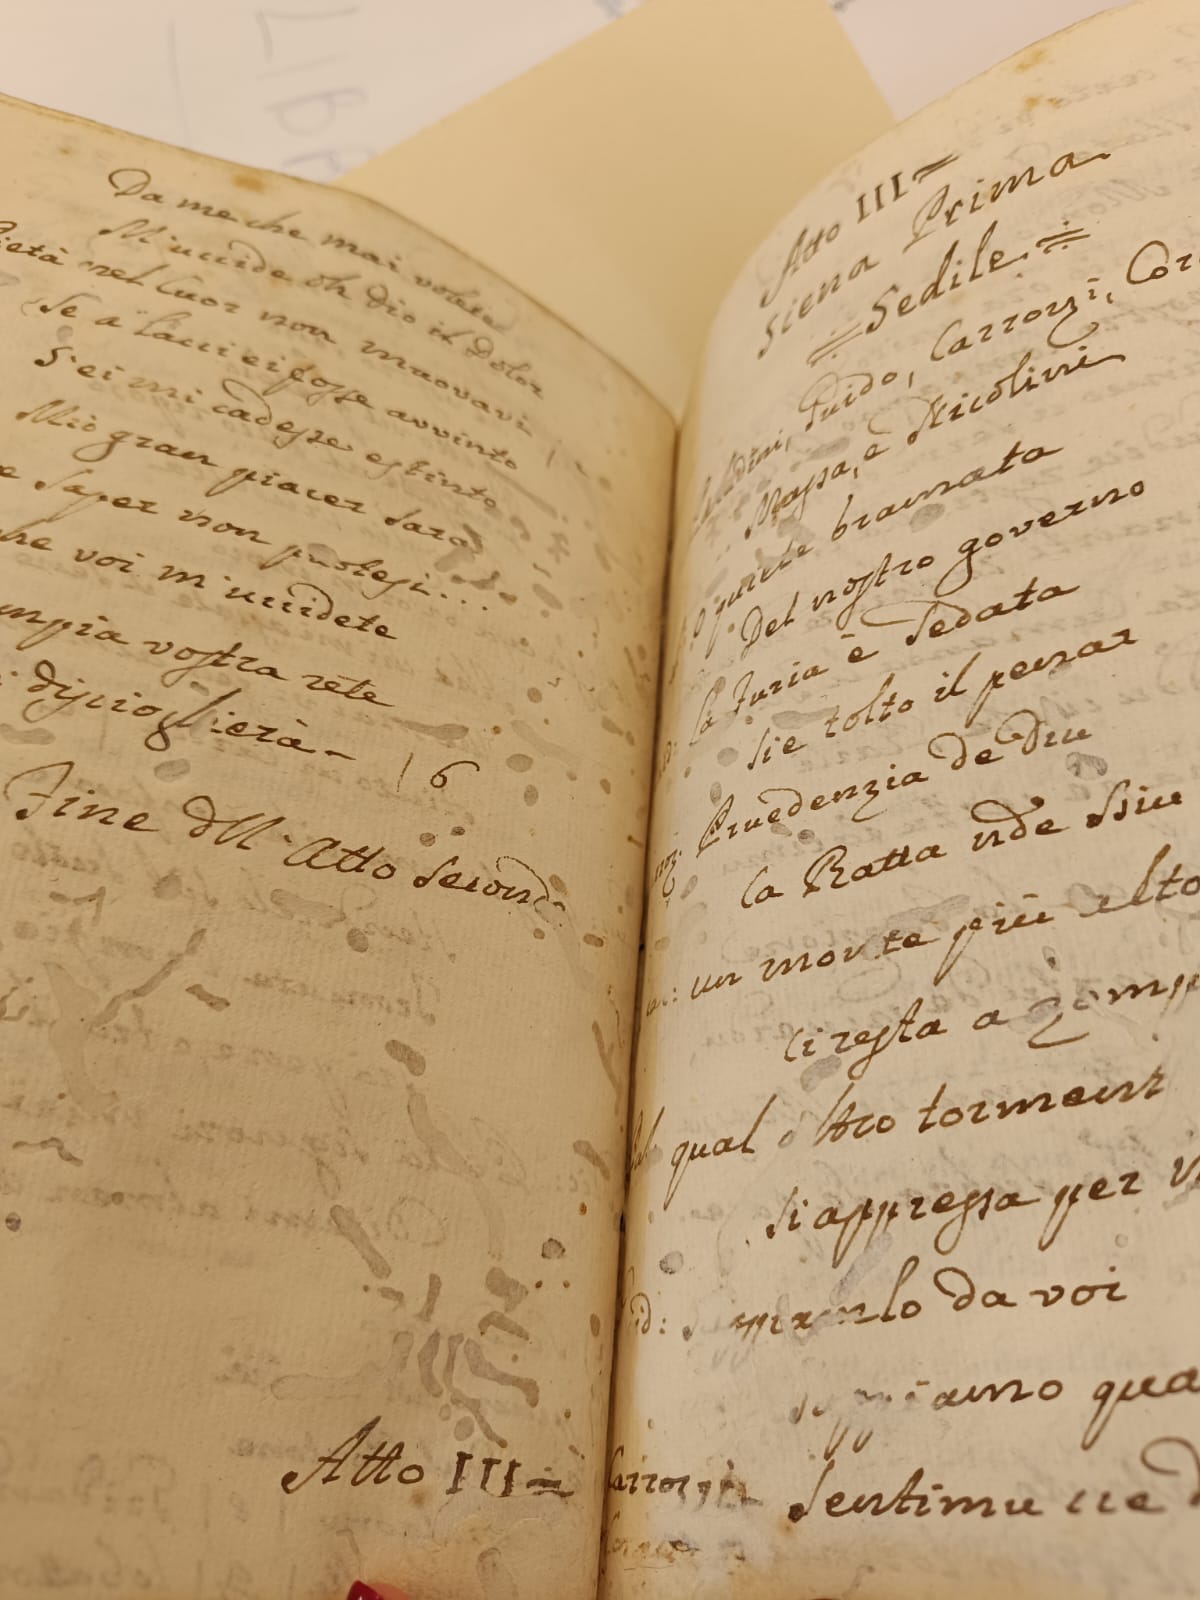 Da me che mai volete
M'uccide oh Dio il Dolor
Pietà nel Cuor non muovavi
Se a lacci ei fosse avvinto
S'ei mi cadesse estinto
Mio gran piacer sarà
saper non puolesi...
che voi m'uccidete
empia vostra rete
discioglierà
16
Fine dll' Atto Second
Atto III =
Atto III =
Siena Prima
= Sedile =
Guido, Carrozzi, Cor
Massa, e Nicolini
O quiete bramata
Del nostro governo
La furia è sedata
Sie tolto il penar
Pruedenzia de Diu
La Ratta nde
un monte più
Ci resta a
qual altro torment
Si appressa per
da voi
qua
Carrozzi
Sentimu